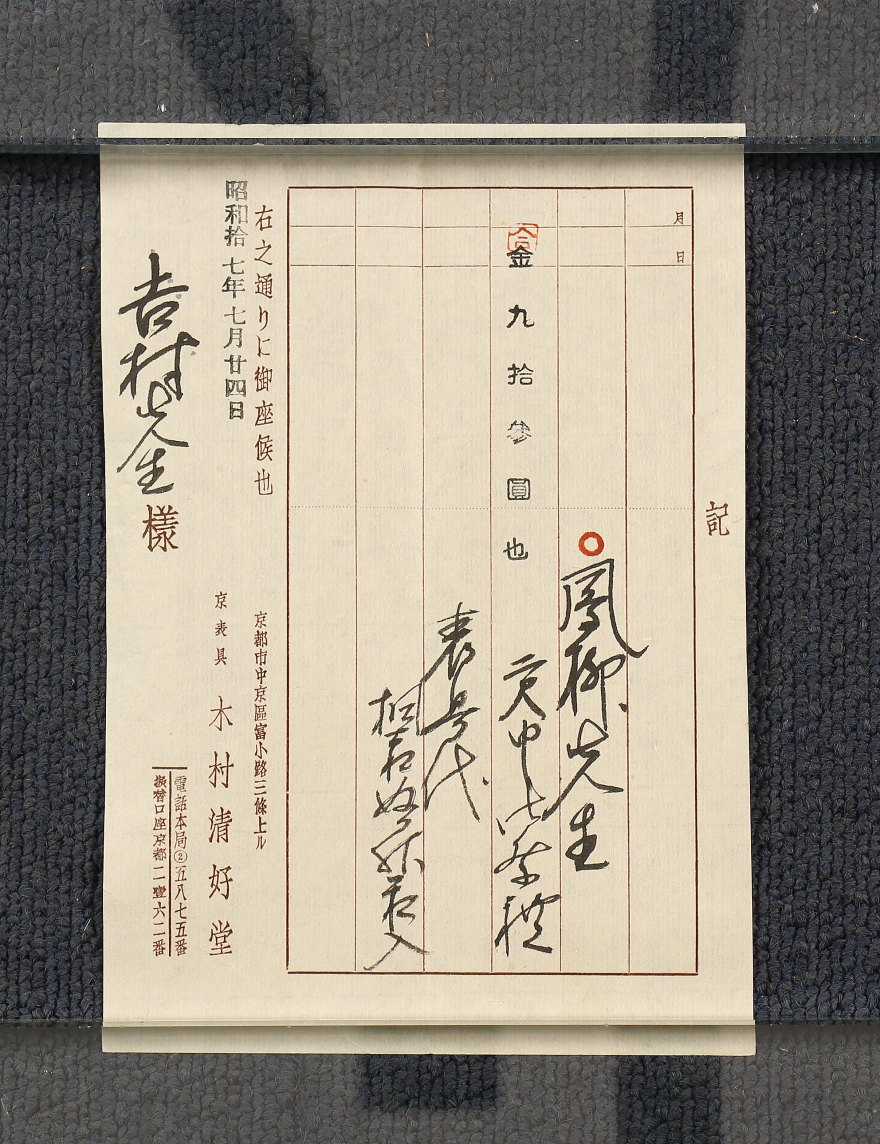 記
月
日
鳳柳先生
金九拾参圓也
表具代
右之通りに御座候也
京都市中京區富小路三條上ル
昭和拾七年七月廿四日
京表具 木村清好堂
電話本局②五八七五番
振替口座京都二一壹六二番
吉村先生様